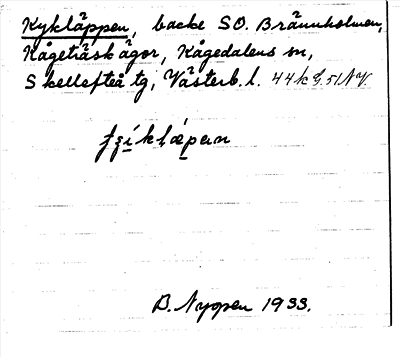 Kykläppen, backe SO. Brännholmen,
Kågeträsk ägor, Kågedalens sn,
Skellefteå tg, Västerb. l.
B. Nygren 1933.